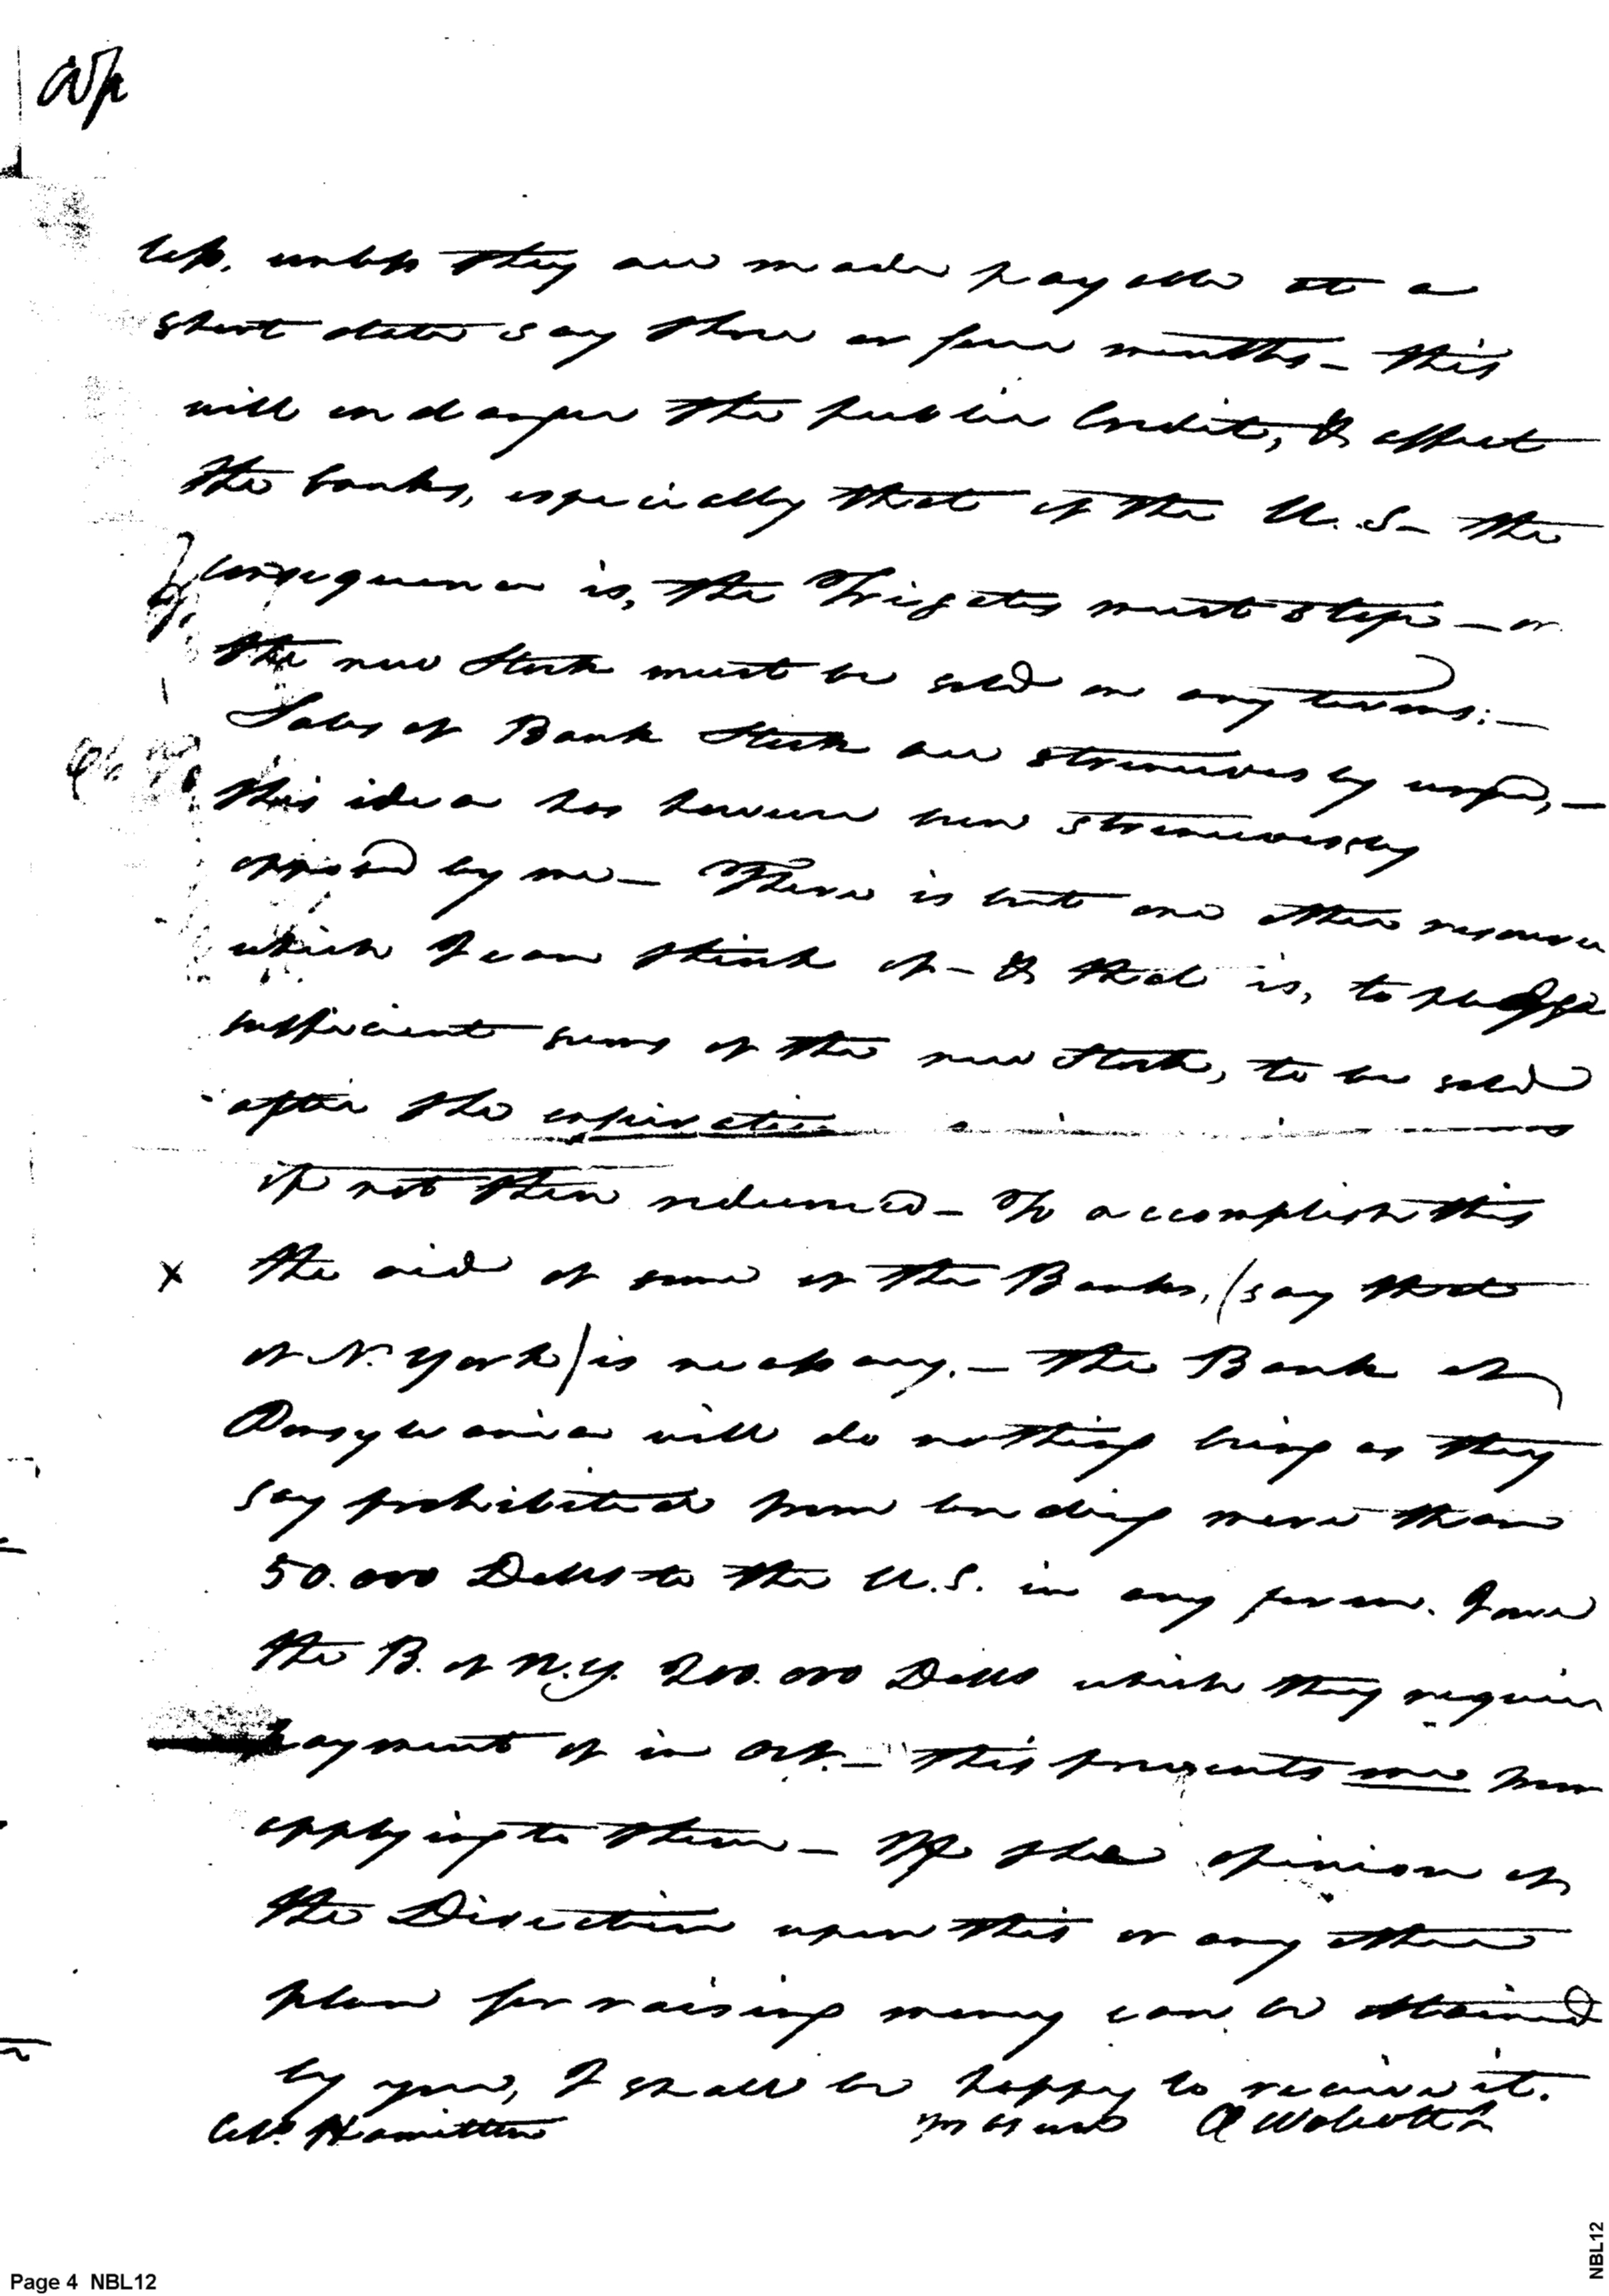 less, unless they are made payable at a
short date say three or four months – this
will endanger the public Credit, & affect
the banks, especially that of the U.S – the
consequence is, the Frigates must stop – or
the new Stock must be sold on any terms: –
Sales of Bank Stock are strenuously urged, –
this idea has however been strenuously
opposed by me – There is but one other resource
which I can think of – & that is, to pledge
sufficient sums of the new Stock, to be sold
after the expiration
if not then redeemed – To accomplish this
x the aid of some of the Banks, /say that
of N. York/ is necessary. – The Bank of
Pensylvania will do nothing being as they
say prohibited from lending more than
50.000 Dolls to the U.S. in any form. I owe
the B. of N.Y. 200.000 Dolls which they require
payment of in – this prevents me from
applying to them – If the opinion of
the Direction upon this or any other
plan for raising money can be obtained
by you, I shall be happy to receive it.
Hamilton Oliv Wolcott Jr
Page 4 NBL12
NBL12